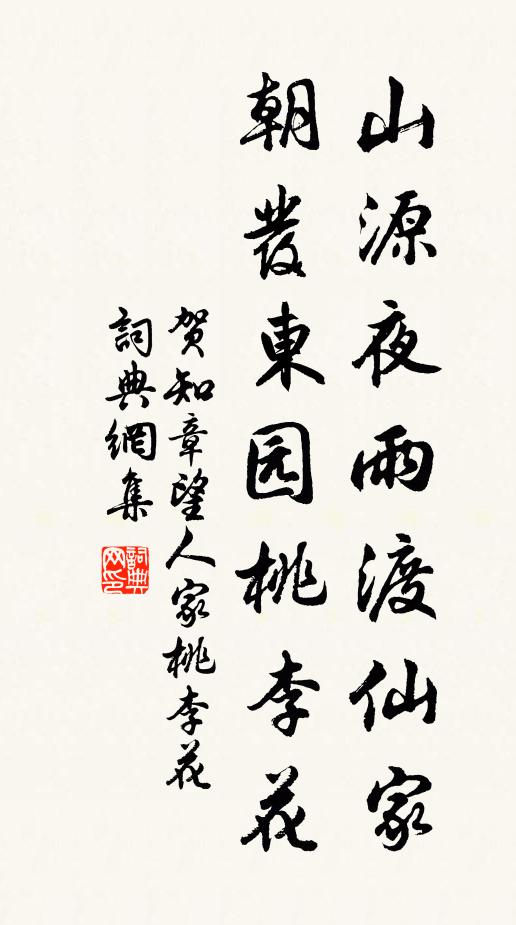 山源夜雨渡仙家
朝發東园桃李花
贺知章望人家桃李花
詞典網集
詞典网印